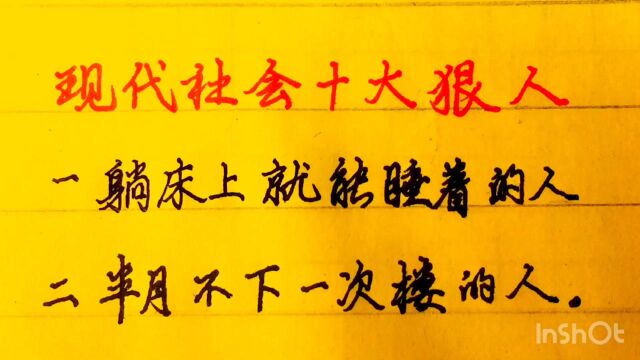 现代社会十大狠人
一躺床上就能睡着的人
二半月不下一次楼的人.
InShOt